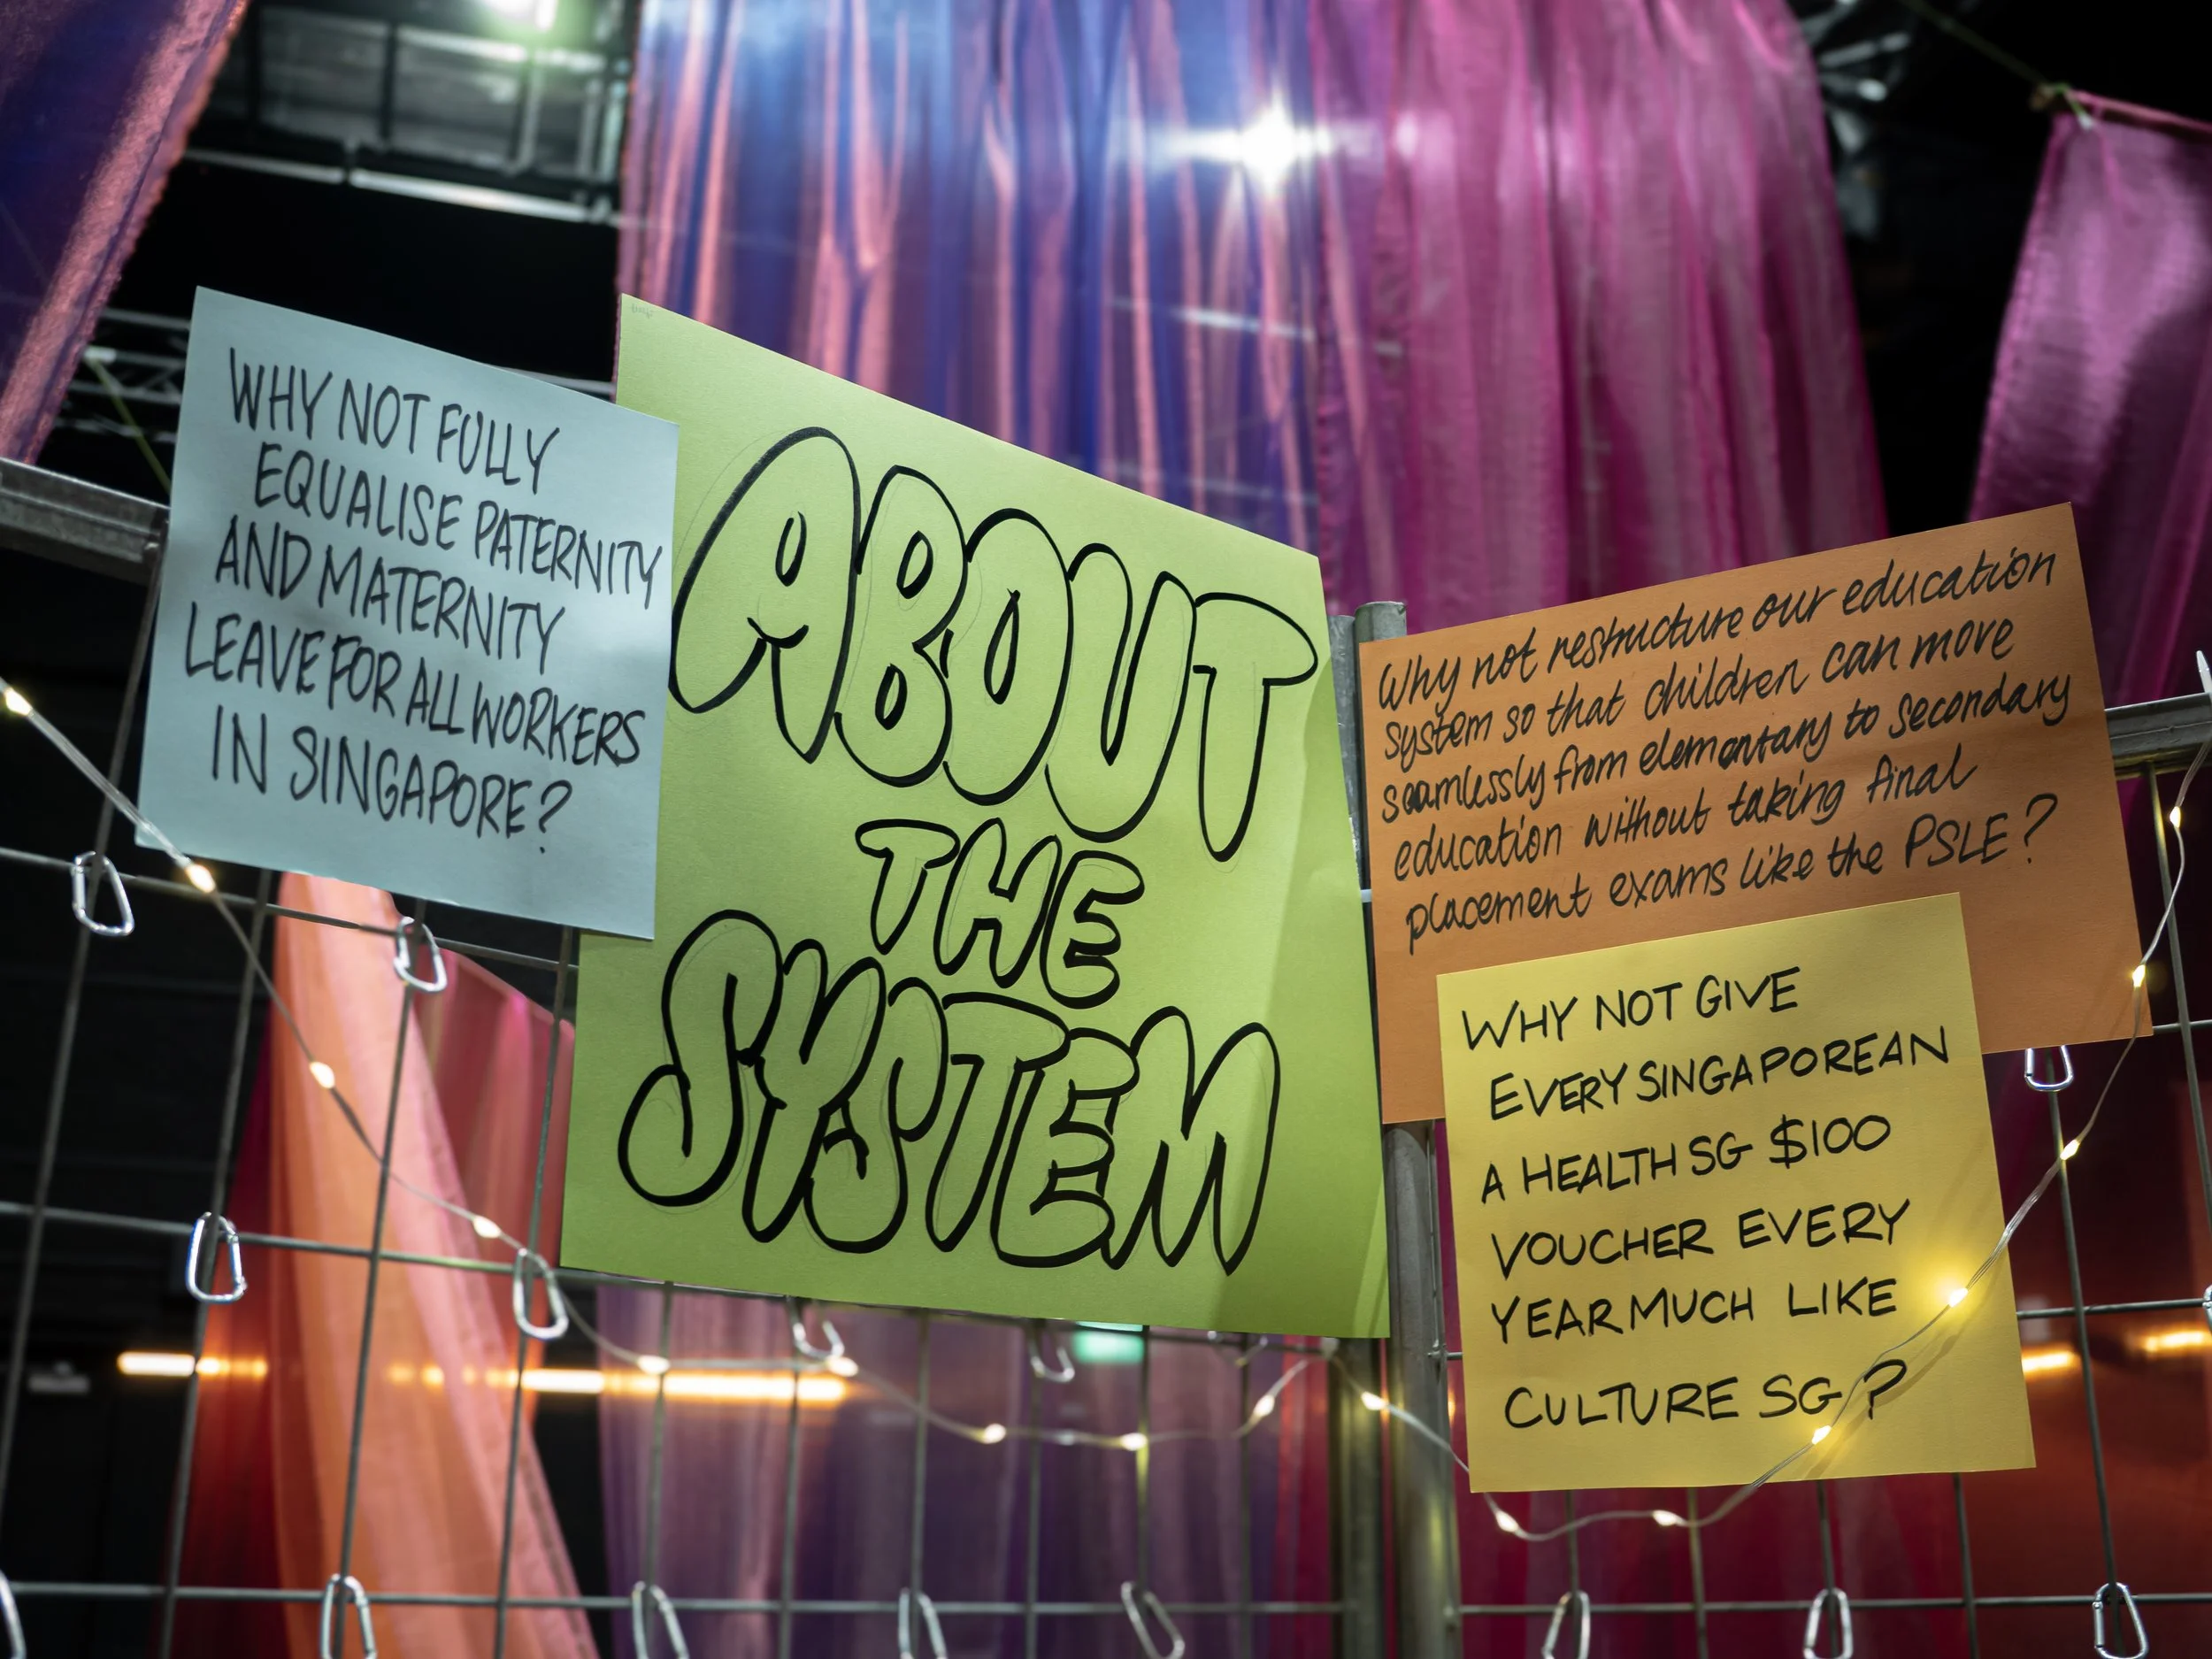 WHY NOT FULLY
EQUALISE PATERNITY
AND MATERNITY
LEAVE FOR ALL WORKERS
IN SINGAPORE?
ABOUT
THE
SYSTEM
Why not restructure our education
system so that children can more
seamlessly from elementary to secondary
education without taking final
placement exams like the PSLE?
WHY NOT GIVE
EVERY SINGAPOREAN
A HEALTH SG $100
VOUCHER EVERY
YEAR MUCH LIKE
CULTURE SG?